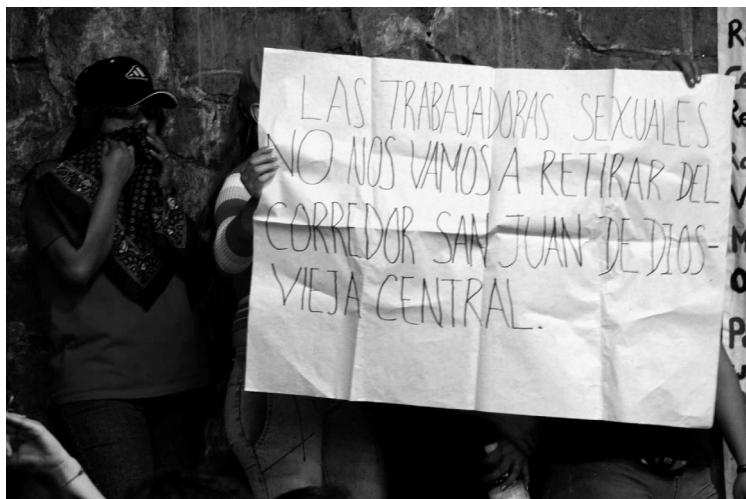 LAS TRABAJADORAS SEXUALES
NO NOS VAMOS A RETIRAR DEL
CORREDOR SAN JUAN DE DIOS-
VIEJA CENTRAL.